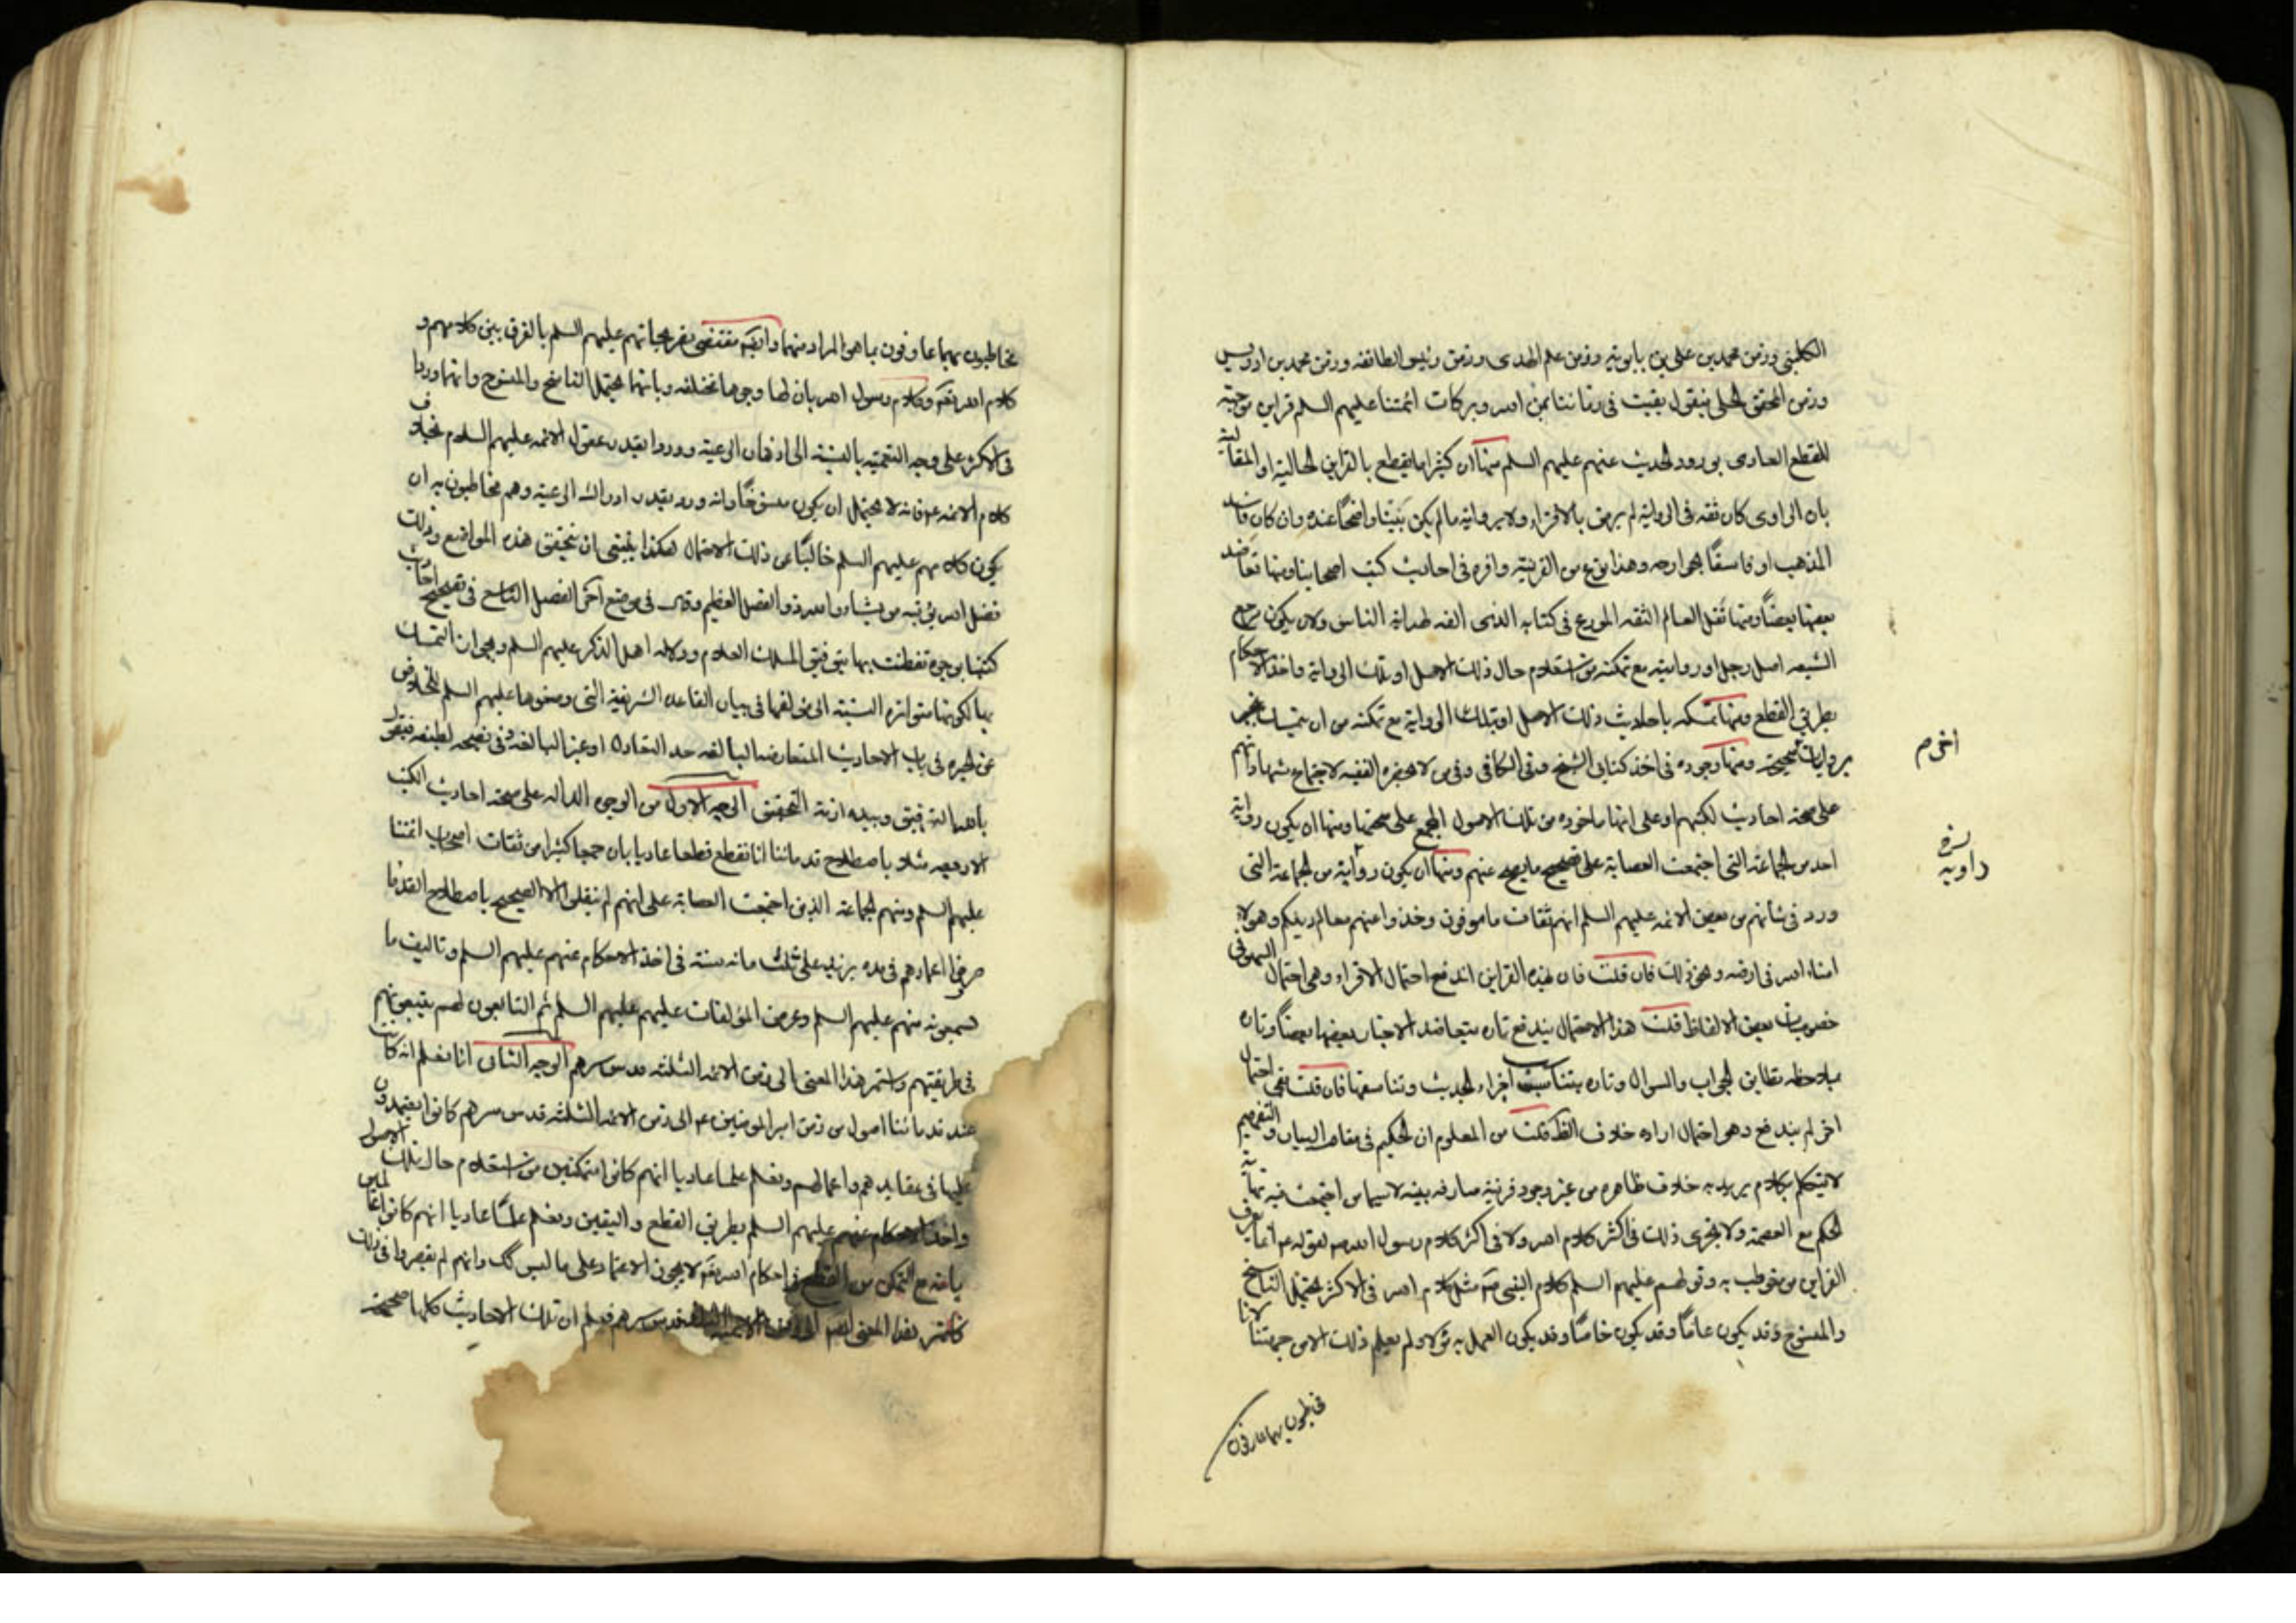 الكليني وزمن محمد بن علي بن بابويه وزمن علم الهدى وزمن رئيس الطائفه وزمن محمد بن ادريس
وزمن المحقق الحلي فنقول بقيت في زماننا بمن الله وبركات ائمتنا عليهم السلم قراين موجبة
للقطع العادى بورود الحديث عنهم عليهم السلم منها ان كثيرا ما نقطع بالقراين الحالية او المقالية
بان الراوى كان ثقه في الرواية لم يرض بالافتراء ولا برواية ما لم يكن بينا واضحا عنده وان كان فاسد
المذهب او فاسقا بجوارحه وهذا نوع من القرينة وافره في احاديث كتب اصحابنا ومنها تعاضد
بعضها ببعض ومنها نقل العالم الثقه الورع في كتابه الذى الفه لهداية الناس ولان يكون مرجع
الشيعه اصل رجل او روايته مع تمكنه من استعلام حال ذلك الاصل او تلك الرواية واخذ الاحكام
بطريق القطع ومنها تمسكه باحاديث ذلك الاصل او بتلك الرواية مع تمكنه من ان يتمسك
بروايات صحيحة ومنها وجوده في احد كتابى الشيخ وفي الكافى وفي من لا يحضره الفقيه لاجتماع شهاداتهم
على صحة احاديث كتبهم او على انها ماخوذه من تلك الاصول المجمع على صحتها ومنها ان يكون رواية
احد من الجماعة التى اجتمعت العصابة على تصحيح ما يصح عنهم ومنها ان يكون رواية من الجماعة التى
ورد في شانهم من بعض الائمه عليهم السلم انهم ثقات مامونون وخذوا عنهم معالم دينكم وهولاء
امناء الله في ارضه ونحو ذلك فان قلت فان بهذه القراين اندفع احتمال الافتراء وهى احتمال السهو في
خصوصيات بعض الالفاظ قلت هذا الاحتمال يندفع تاره بتعاضد الاخبار بعضها ببعض وتاره
بملاحظه تطابق الجواب والسوال وتاره بتناسب اجزاء الحديث وتناسقها فان قلت بقى احتمال
اخر لم يندفع وهو احتمال اراده خلاف الظ قلت من المعلوم ان الحكيم في مقام البيان والتفهيم
لا يتكلم بكلام يريد به خلاف ظاهره من غير وجود قرينة صارفه بينه لاسيما من اجتمعت فيه نهاية
الحكم مع العصمة ولا يجرى ذلك في اكثر كلام الله ولا في اكثر كلام رسول الله ص لقوله ع انما يعرف
القراين من خوطب به وقولهم عليهم السلم كلام النبى ص مثل كلام الله في الاكثر يحتمل الناسخ
والمنسوخ وقد يكون عاما وقد يكون خاصا وقد يكون العمل به مؤولا ولم يعلم ذلك الا من جهتنا لانا
مخاطبون بهما عارفون
مخاطبون بهما عارفون بما هو المراد منهما وايض مقتضى تصريحاتهم عليهم السلم بالفرق بين كلامهم و
كلام الله تعالى وكلام رسول الله بان لهما وجوها مختلفه وبانهما يحتمل الناسخ والمنسوخ وانهما وردا
في الاكثر على وجه التعمية بالنسبة الى اذهان الرعية ووردا بقدر عقول الائمه عليهم السلام بخلاف
كلام الائمه ع فانه لا يحتمل ان يكون منسوخا وانه ورد بقدر ادراك الرعية وهم مخاطبون به ان
يكون كلامهم عليهم السلم خاليا عن ذلك الاحتمال هكذا ينبغى ان يتحقق هذه المواضع وذلك
فضل الله يؤتيه من يشاء والله ذو الفضل العظيم وقال في موضع اخر الفصل التاسع في تصحيح احاديث
كتبنا بوجوه تفطنت بها بتوفيق الملك العلام ودلاله اهل الذكر عليهم السلم وبجواز التمسك
بها لكونها متواتره النسبة الى مؤلفها في بيان القاعده الشريفة التى وضعوها عليهم السلم للخلاص
عن الحيره في باب الاحاديث المتعارضه البالغه حد التعادل او غير البالغه وفي نصيحه لطيفه فنقول
بالله التوفيق وبيده ازمة التحقيق الوجه الاول من الوجوه الداله على صحة احاديث الكتب
الاربعه مثلا باصطلاح قدمائنا انا نقطع قطعا عاديا بان جمعا كثيرا من ثقات اصحاب ائمتنا
عليهم السلم ومنهم الجماعة الذين اجتمعت العصابة على انهم لم ينقلوا الا الصحيح باصطلاح القدما
صرفوا اعمارهم في مده يزيد على ثلث مائه سنة في اخذ الاحكام عنهم عليهم السلم وتاليف ما
يسمعونه منهم عليهم السلم وعرض المؤلفات عليهم عليهم السلم ثم التابعون لهم يتبعونهم
في طريقتهم واستمر هذا المعنى الى زمن الائمه الثلثه قدس سرهم الوجه الثانى انا نعلم انه كانت
عند قدمائنا اصول من زمن امير المؤمنين ع الى زمن الائمه الثلثة قدس سرهم كانوا يعتمدون
عليها في عقايدهم واعمالهم ونعلم علما عاديا انهم كانوا متمكنين من استعلام حال تلك الاصول
واخذ الاحكام عنهم عليهم السلم بطريق القطع واليقين ونعلم علما عاديا انهم كانوا عالمين
بانه مع التمكن من القطع في احكام الله تعالى لا يجوز الاعتماد على ما ليس كك وانهم لم يقصروا في ذلك
فاستمر هذا المعنى الى زمن الائمة الثلثه قدس سرهم فعلم ان تلك الاحاديث كلها صحيحة